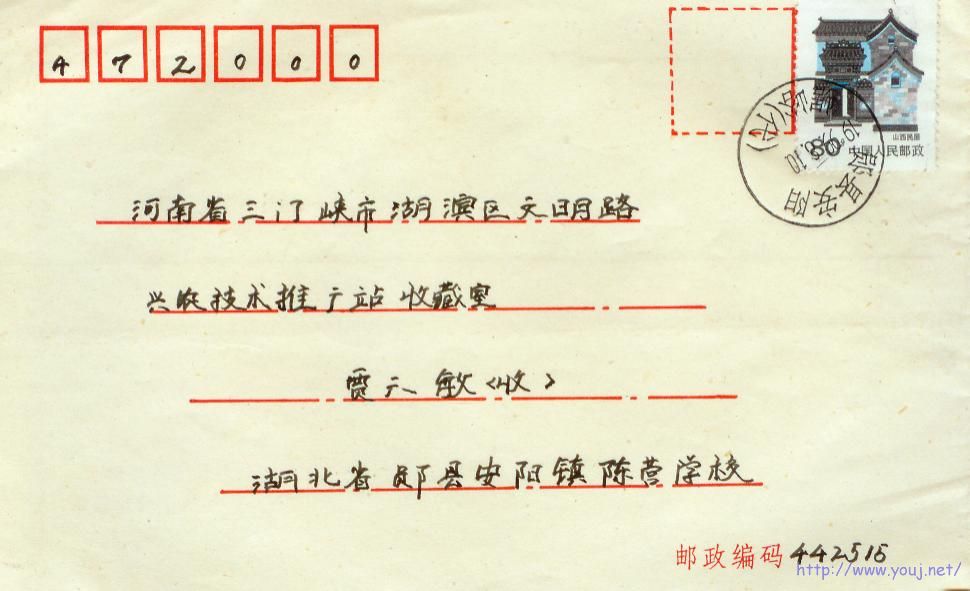 472000
山西民居
中国人民邮政
河南省三门峡市湖滨区文明路
兴农技术推广站 收藏室
贾云敏〈收〉
湖北省郧县安阳镇陈营学校
邮政编码 442515
http://www.youj.net/